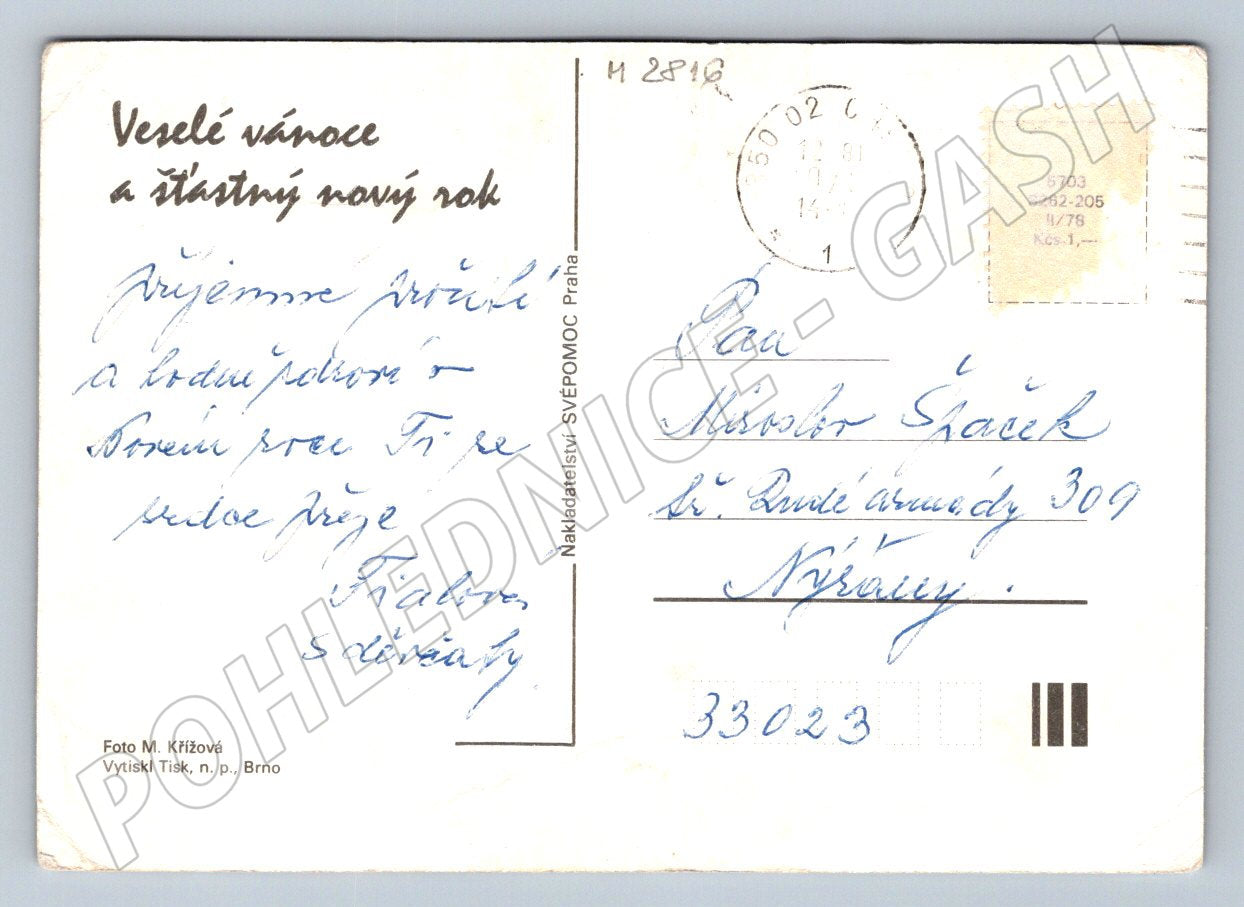 Veselé vánoce
a šťastný nový rok
příjemné prožití
a hodně zdraví v
Novém roce Ti ze
srdce přeje
Fialova
s děvčaty
Foto M. Křížová
Vytiskl Tisk, n. p., Brno
Nakladatelství SVÉPOMOC Praha
M 2816
350 02 C
12. 81
1
5703
6262-205
II/78
Kčs 1,—
Pan
Miroslav Špaček
tř. Rudé armády 309
Nýřany.
33023
POHLEDNICE - GASH